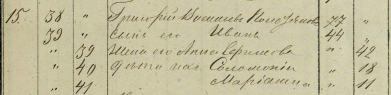 15. 38 " Григорій Васильевъ 77 "
39 " Сынъ его Иванъ 44 "
" 39 Жена его Анна Ефимова " 42
" 40 Дочь Соломонія " 18
" 41 Маріанна " 11